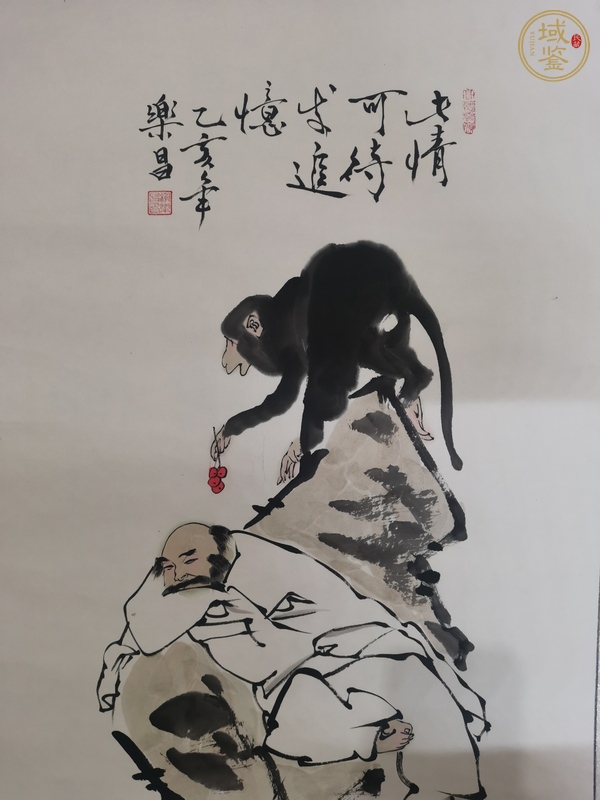 此情
可待
成追
憶
乙亥年
樂昌
域鑒